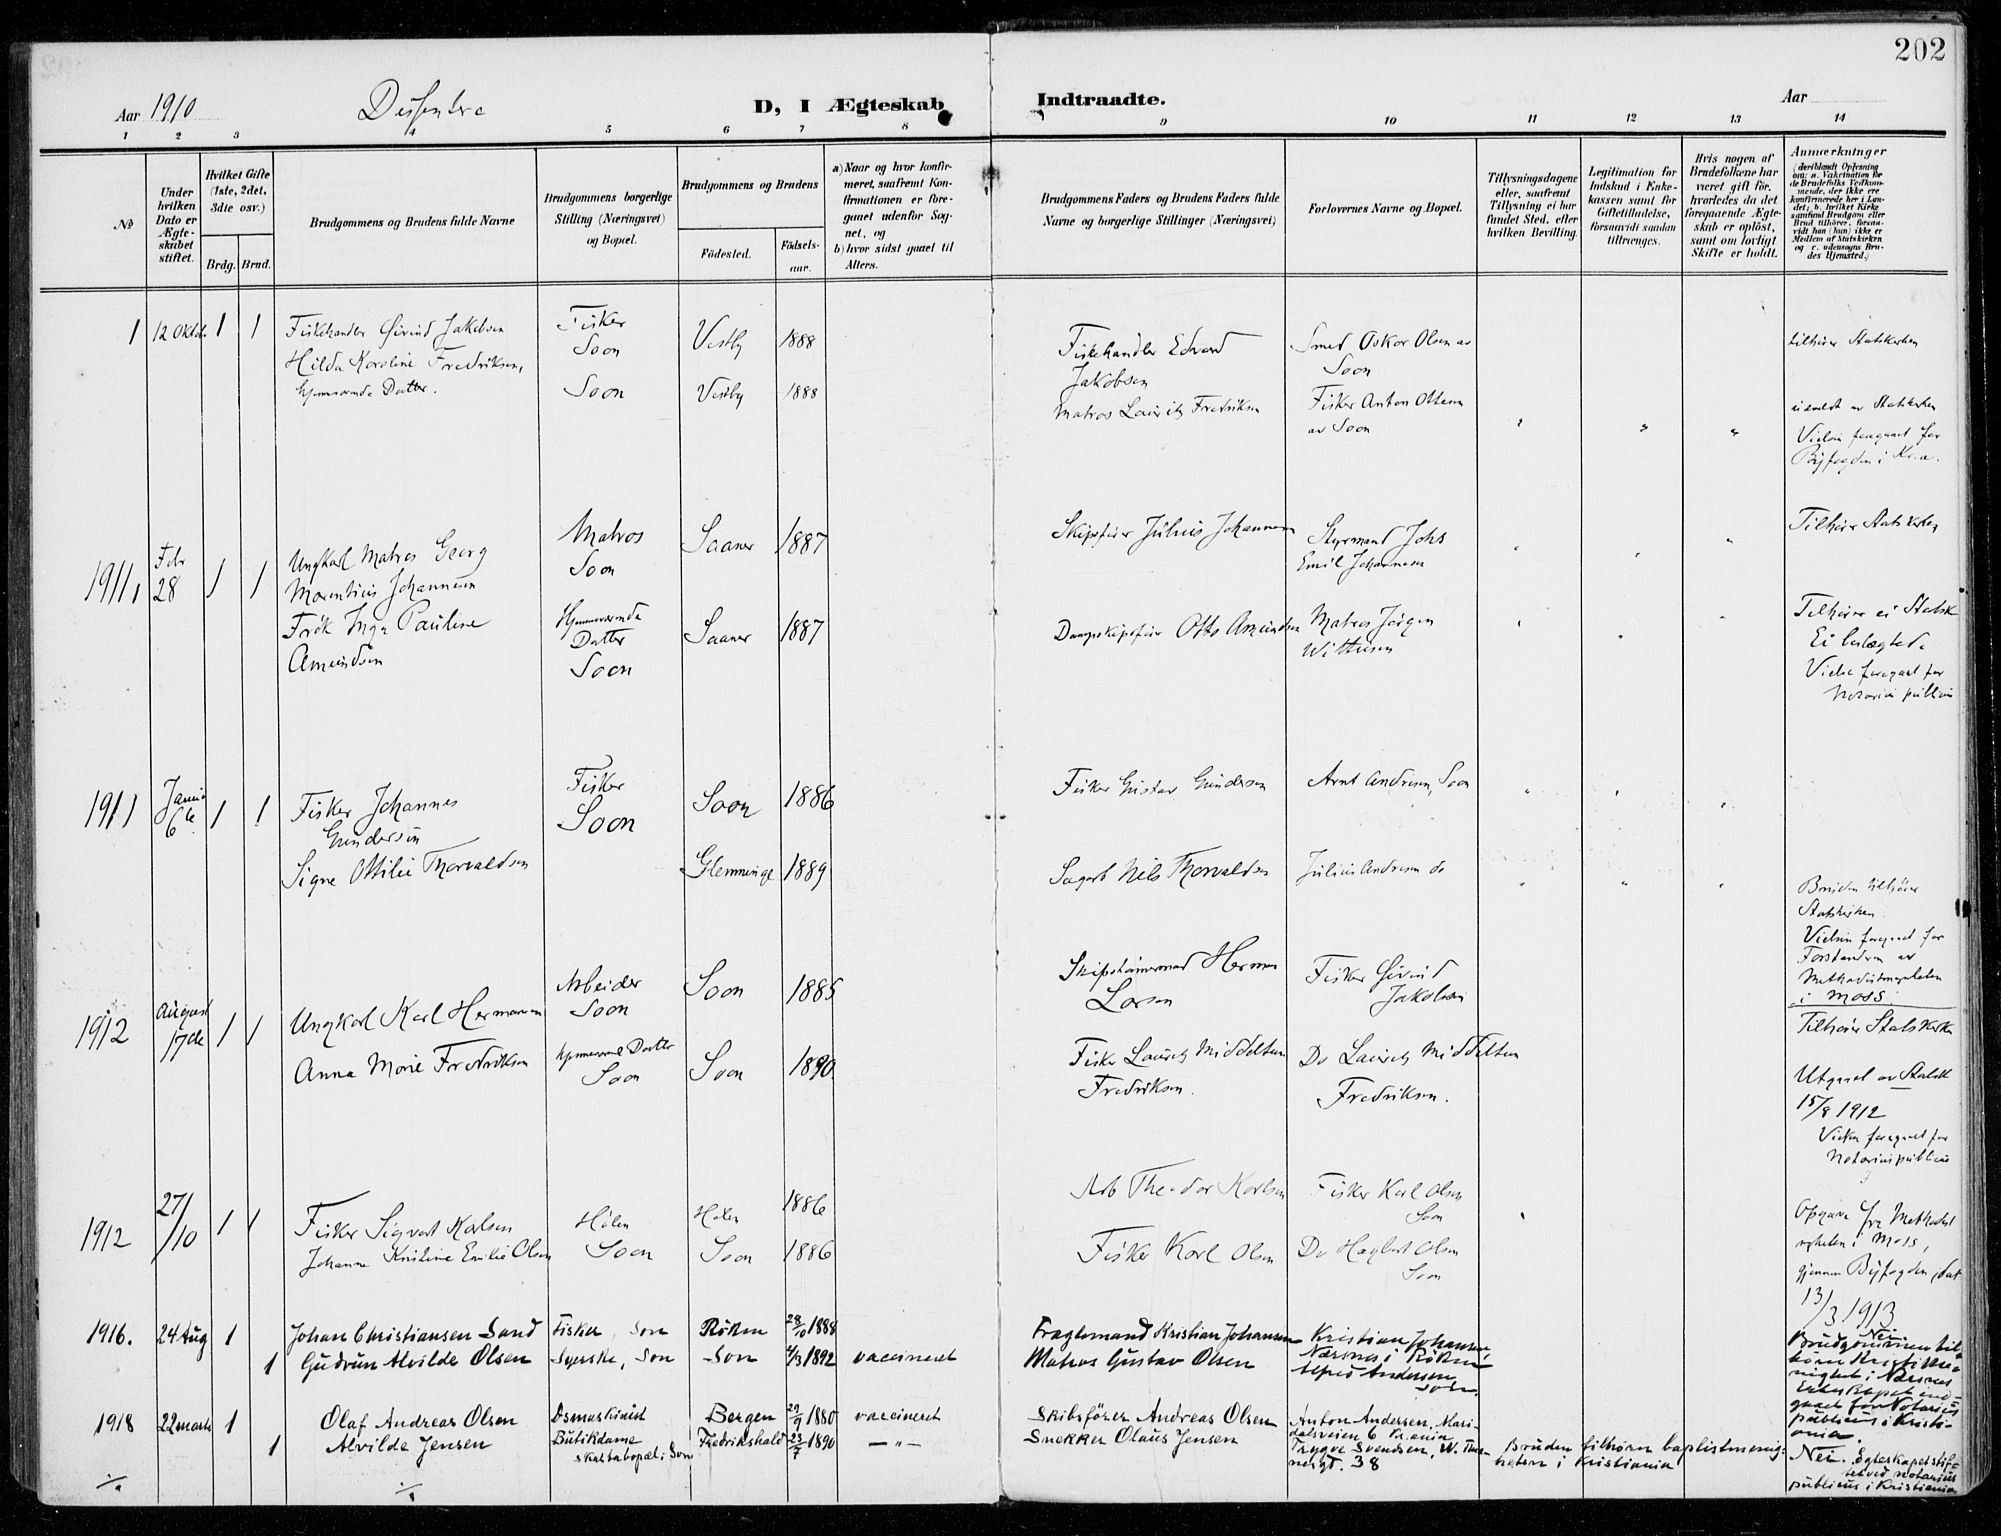 202
Aar 1910
Dissentere
D, I Ægteskab Indtraadte.
Aar
1 2 3 4 5 6 7 8 9 10 11 12 13 14
No
Under hvilken Dato er Ægteskabet stiftet.
Hvilket Gifte (1ste, 2det, 3die osv.)
Brdg. Brud.
Brudgommens og Brudens fulde Navne
Brudgommens borgerlige Stilling (Næringsvei) og Bopæl.
Brudgommens og Brudens
Fødested.
Fødselsaar.
a) Naar og hvor konfirmeret, saafremt Konfirmationen er foregaaet udenfor Sognet, og
b) hvor sidst gaaet til Alters.
Brudgommens Faders og Brudens Faders fulde Navne og borgerlige Stillinger (Næringsvei)
Forlovernes Navne og Bopæl.
Tillysningsdagene eller, saafremt Tillysning ei har fundet Sted, efter hvilken Bevilling.
Legitimation for Indskud i Enkekassen samt for Giftetilladelse, forsaavidt saadan tiltrænges.
Hvis nogen af Brudefolkene har været gift før, hvorledes da det foregaaende Ægteskab er opløst, samt om lovligt Skifte er holdt.
Anmærkninger
(deriblandt Oplysning om: a. Vakcination for de Brudefolks Vedkommende, der ikke ere konfirmerede her i Landet; b. hvilket Kirkesamfund Brudgom eller Brud tilhører, forsaavidt han (hun) ikke er Medlem af Statskirken og c. udensogns Brudes Hjemsted.)
1 12 Oktbr 1 1 Fiskehandler Øivind Jakobsen Fisker Soon Vestby 1888 Fiskehandler Edvard Jakobsen Smed Oskar Olsen av Soon tilhører Statskirken
Hilda Karoline Fredriksen, hjemmeværende Datter. Soon Vestby 1888 Matros Lauritz Fredriksen Fisker Anton Olsen av Soon " " " uimeldt av Statskirken
Vielsen foregaaet for Byfogden i Kr.a.
1911, Febr 28 1 1 Ungkarl Matros Georg Marentius Johannesen Matros Soon Saaner 1887 Skipsfører Julius Johannesen Styrmand Johs Emil Johannesen " " " Tilhører Statskirken
Frøk Inga Pauline Amundsen Hjemmeværende Datter Soon Saaner 1887 Dampskipsfører Otto Amundsen Matros Jørgen Wittusen " " " Tilhører ei Statsk
Ei beslægtede
Vielse foregaaet for Notarius publicus
1911 Januar 6te 1 1 Fisker Johannes Gundersen Fisker Soon Soon 1886 Fisker Gustav Gundersen Arnt Andresen, Soon " " "
Signe Ottilie Thorvaldsen Glemminge 1889 Sagarb Nils Thorvaldsen Julius Andresen do " " " Bruden tilhører Statskirken.
Vielsen foregaaet for Forstanderen av Methodistmenigheten i Moss.
1912 August 17de 1 1 Ungkarl Karl Hermansen Arbeider Soon Soon 1885 Skipstømmermand Herman Larsen Fisker Øivind Jakobsen Tilhører Statskirke
Anna Marie Fredriksen hjemmeværende Datter Soon Soon 1890. Fisker Lauritz Middeltun Fredriksen. Do Lauritz Middeltun Fredriksen. Utgaaet av Statsk 15/8 1912
Vielsen foregaaet for Notarius publicus
1912 27/10 1 1 Fisker Sigvart Karlsen Hølen Hølen 1886 Arb Theodor Karlsen Fisker Karl Olsen Soon " Opgave fra Methodist
Johanne Kristine Emilie Olsen Soon Soon 1886 Fisker Karl Olsen Do Hagbart Olsen Soon
mgheten i Moss, gjennem Byfogden, dat 13/3 1913
1916. 24 Aug 1 Johan Christiansen Sand Fisker, Son Røken 28/10 1888 Fragtemand Kristian Johansen Kristian Johansen, Nærsnes i Røken Nei.
1 Gudrun Alvilde Olsen Syerske, Son Son 4/3 1892 vaccineret Matros Gustav Olsen Alfred Andersen Son.
Brudgommen tilhører Kristi menighet i Nærsnes Ekteskapet indgaaet for Notarius publicus i Kristiania.
1918 22 marts 1 Olaf Andreas Olsen Dsmaskinist Bergen 29/9 1880 vaccineret Skibsfører Andreas Olsen Anton Andersen, Maridalsveien 6 Kr.ania
1 Alvilde Jensen Butikdame skattebopæl i Son Fredrikshald 23/7 1890 — " — Snekker Olaus Jensen Trygve Svendsen, W. Thranesgt. 38 Bruden tilhører baptistmenigheten i Kristiania
Nei. Egteskapet stiftet ved notarius publicus i Kristiania